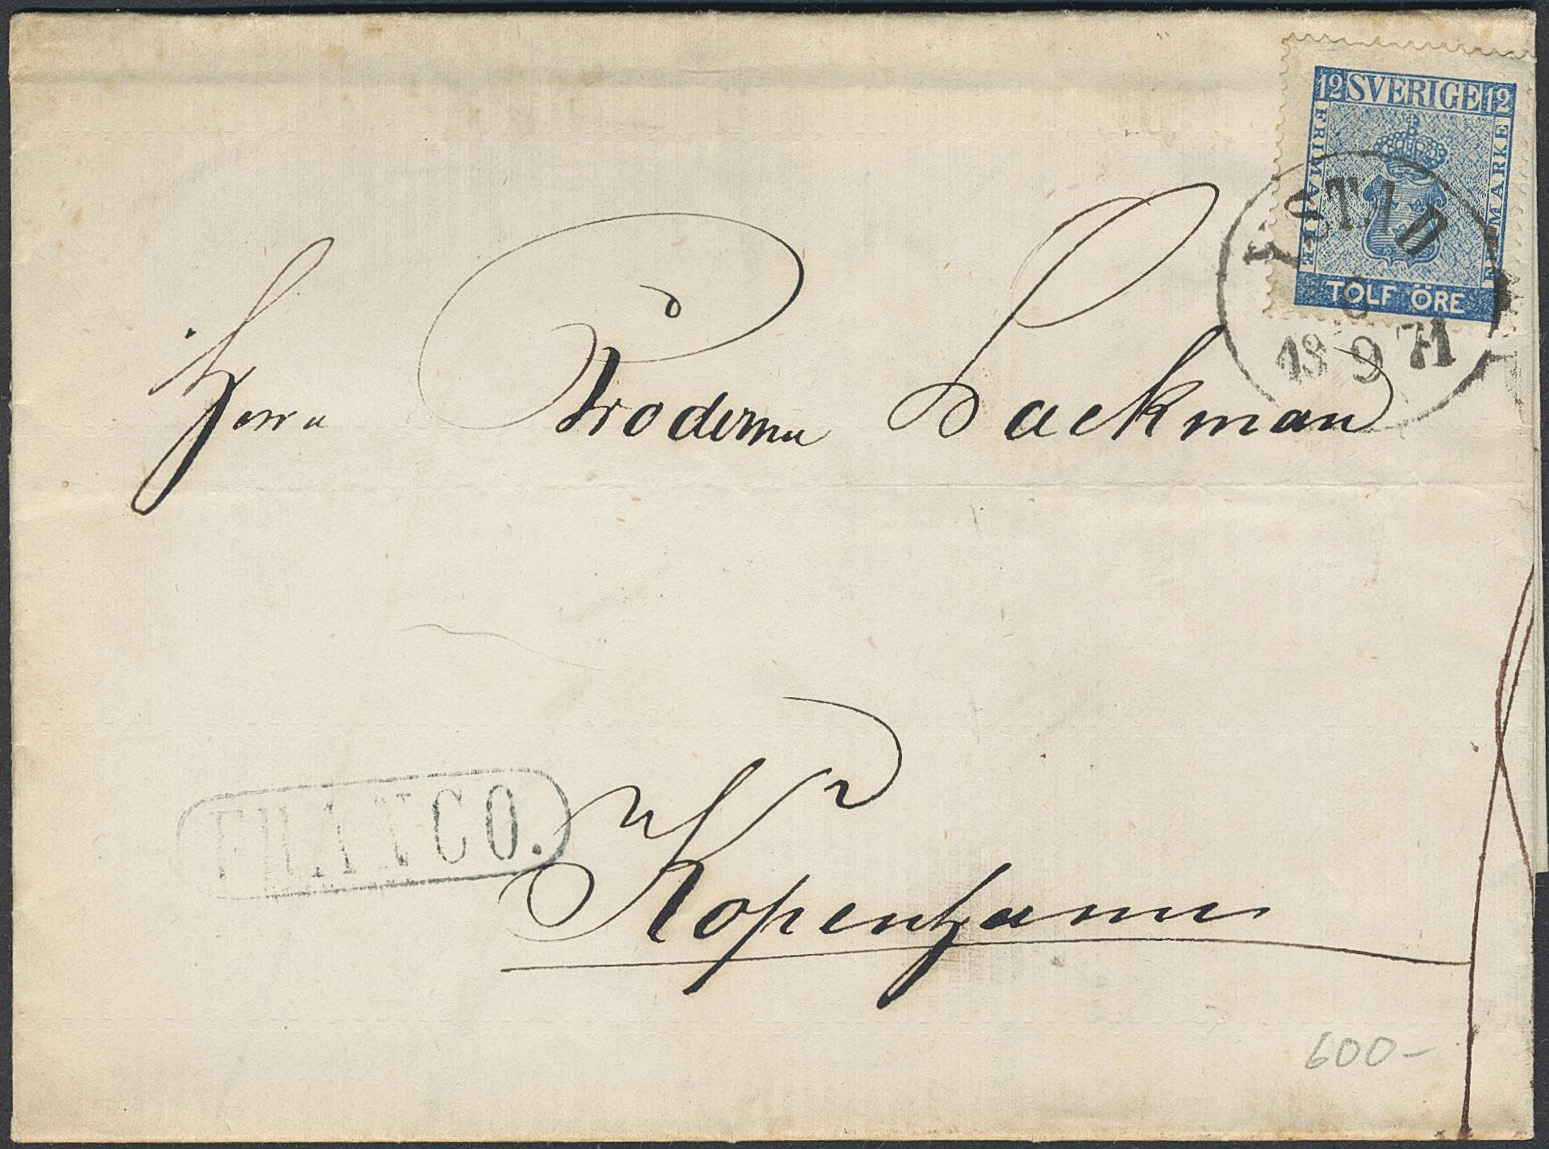 12 SVERIGE 12
FRIMÄRKE FRIMÄRKE
TOLF ÖRE
YSTAD
18 9 71
Herrn Broderna Lackman
FRANCO.
Kopenhamn
600-